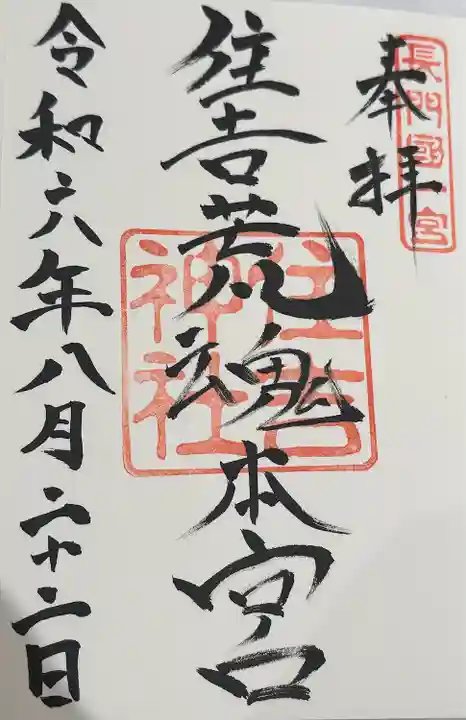 奉拝
長門國一宮
住吉荒魂本宮
住吉
神社
令和六年八月二十二日